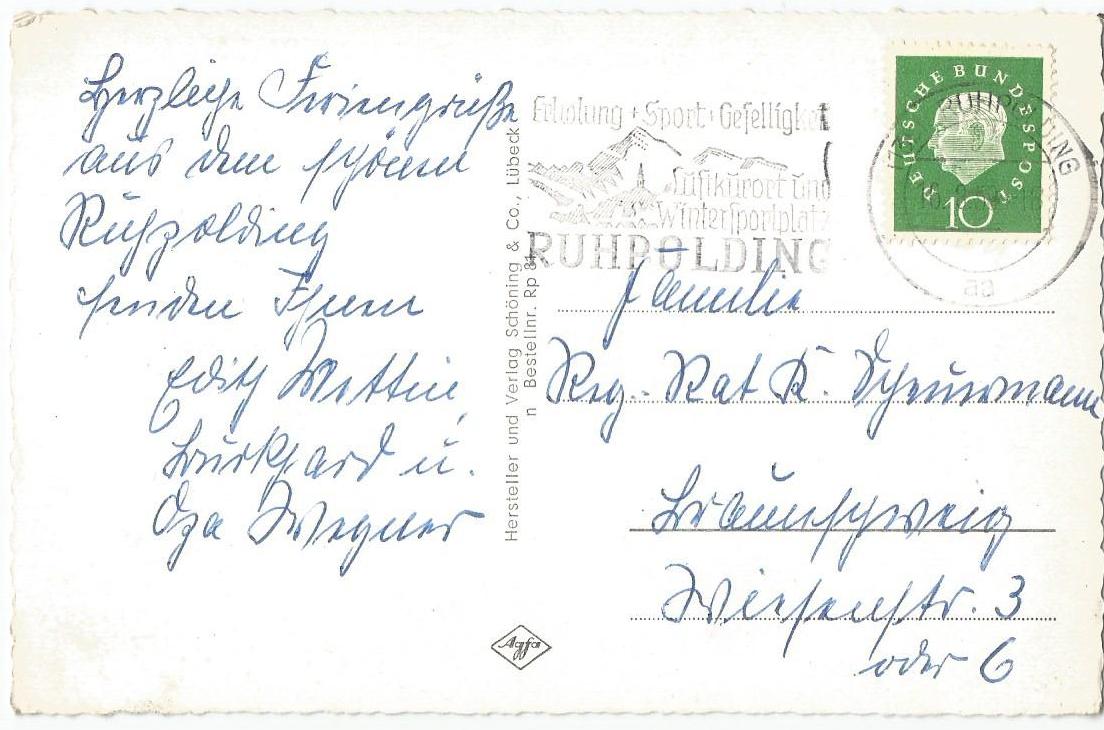 Herzliche Feriengrüße
aus dem schönen
Ruhpolding
senden Ihnen
Edith Wettin,
Burkhard u.
Oza Wegner
Hersteller und Verlag Schöning & Co., Lübeck
n Bestellnr. Rp 8
Erholung + Sport + Geselligkeit
Luftkurort und
Wintersportplatz
RUHPOLDING
DEUTSCHE BUNDESPOST
10
RUHPOLDING
aa
Familie
Reg.-Rat K. Scheuermann
Braunschweig
Wiesenstr. 3
oder 6
Agfa